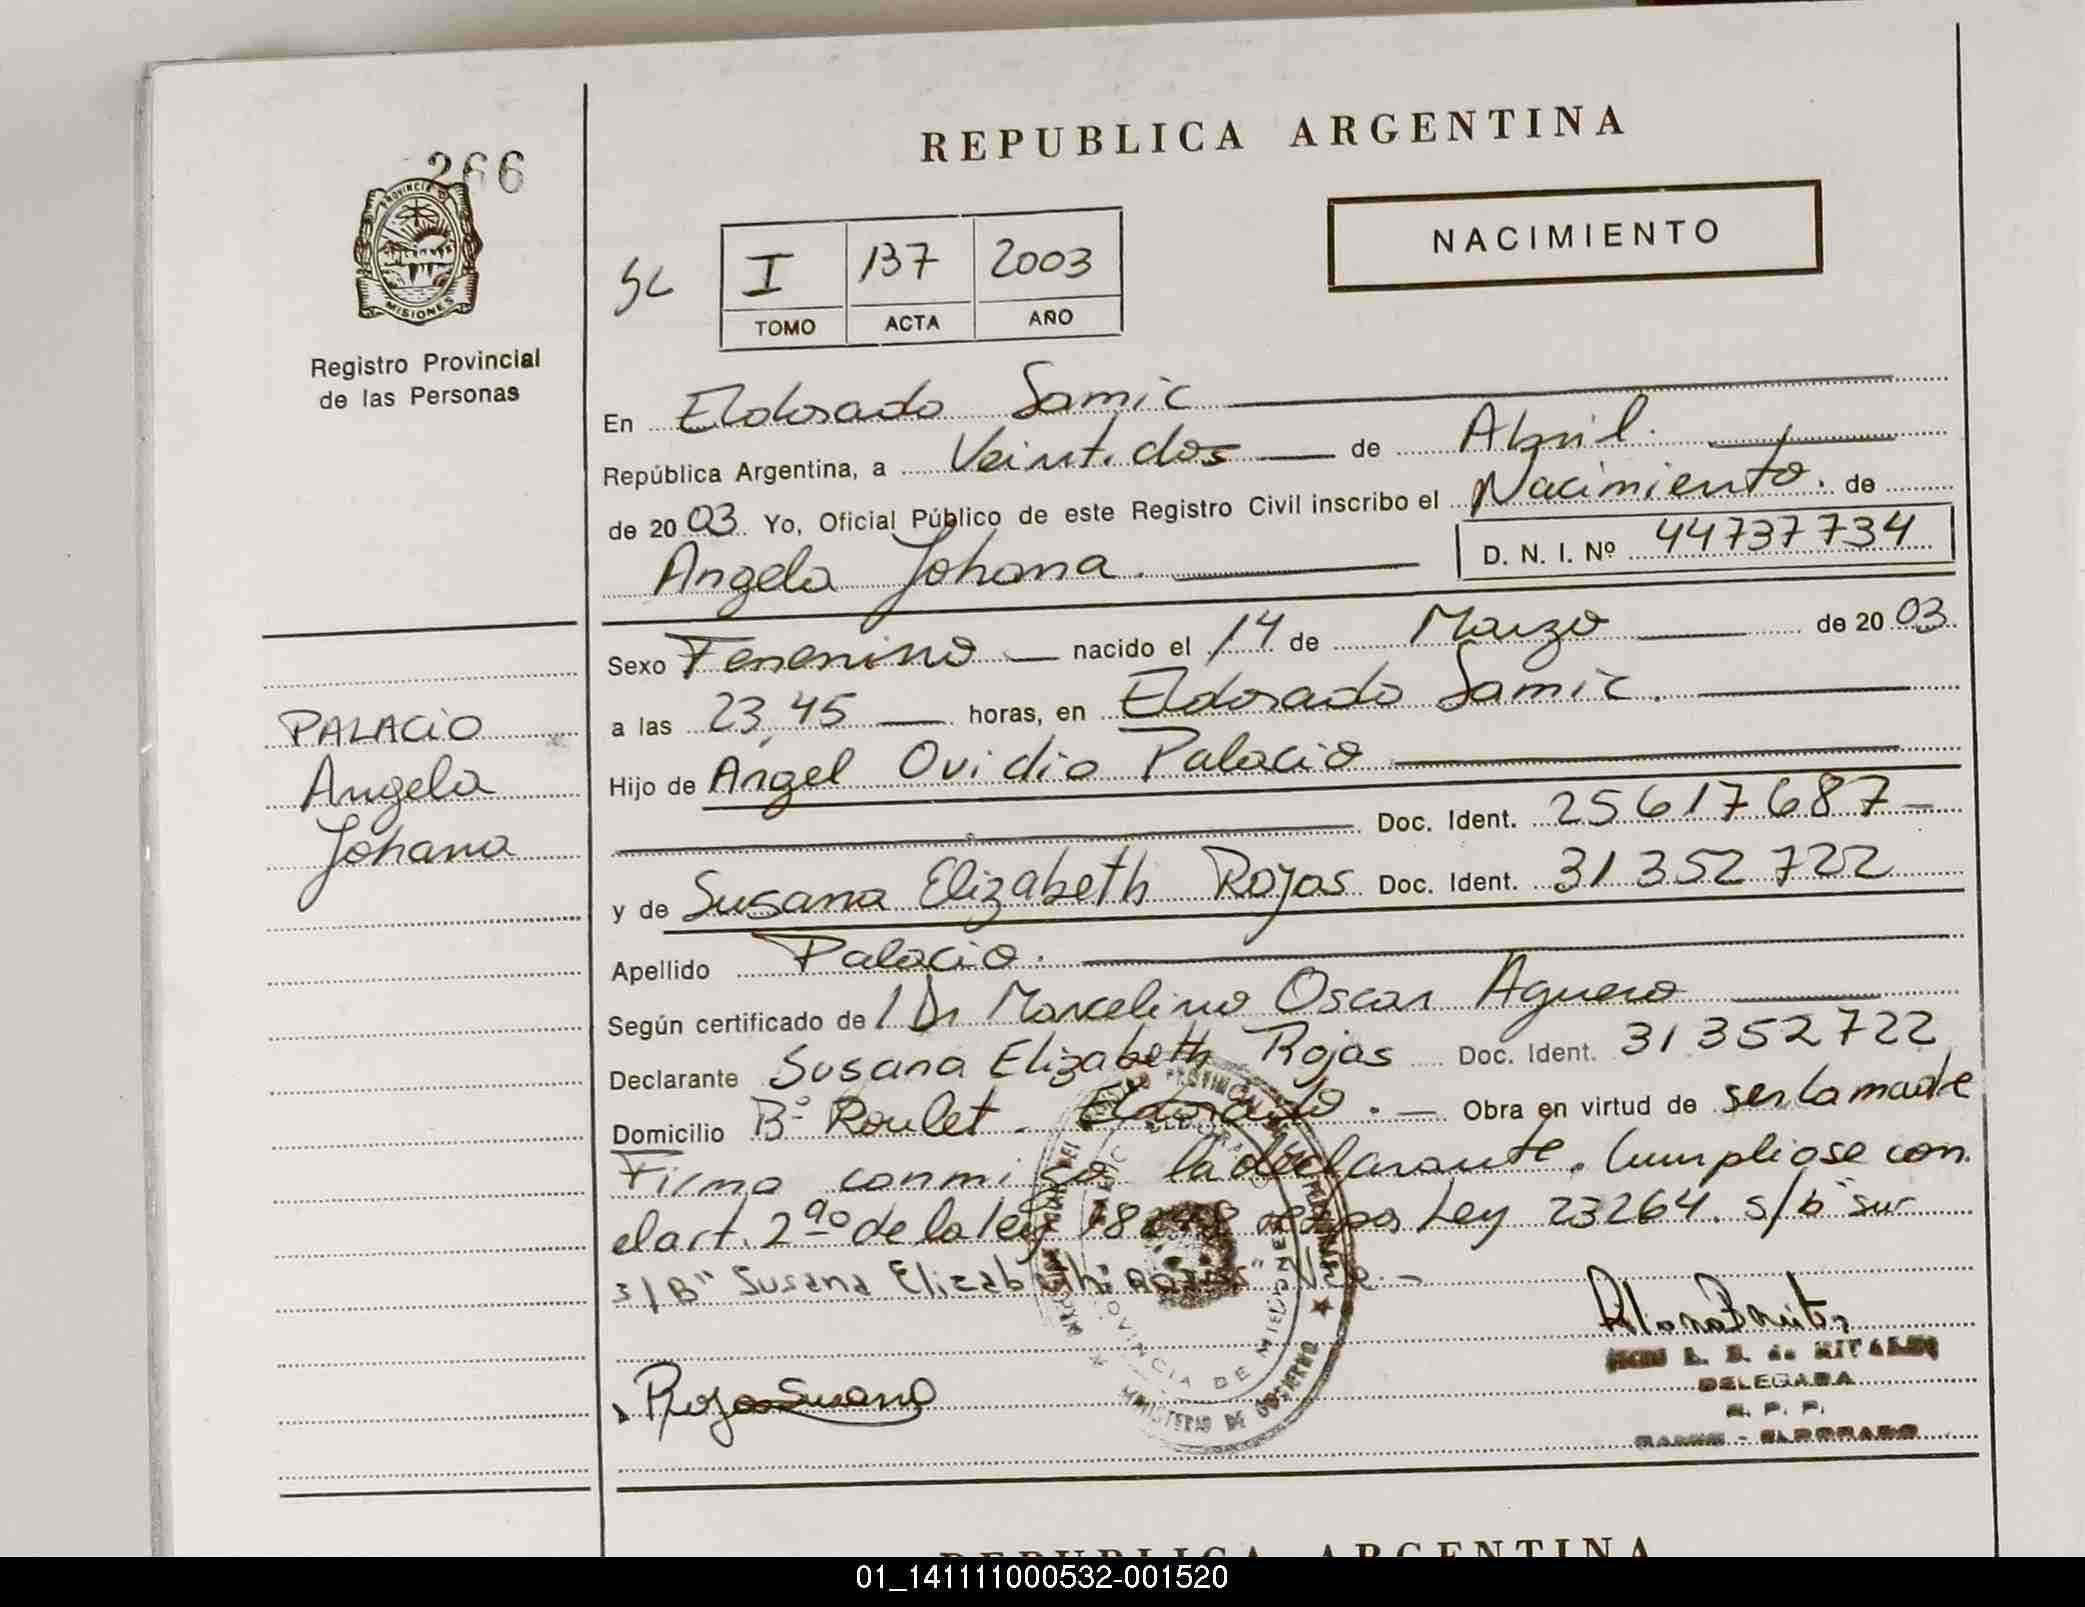 266
PROVINCIA DE
MISIONES
Registro Provincial
de las Personas
REPUBLICA ARGENTINA
NACIMIENTO
SL I 137 2003
TOMO ACTA AÑO
En Eldorado Samic
República Argentina, a Veintidos de Abril.
de 2003. Yo, Oficial Público de este Registro Civil inscribo el Nacimiento. de
Angela Johana. D. N. I. Nº 44737734
Sexo Femenino nacido el 14 de Marzo de 2003.
a las 23,45 horas, en Eldorado Samic.
PALACIO
Angela
Johana
Hijo de Angel Ovidio Palacio
Doc. Ident. 25617687
y de Susana Elizabeth Rojas Doc. Ident. 31352722
Apellido Palacio.
Según certificado de / Dr Marcelino Oscar Aguero
Declarante Susana Elizabeth Rojas Doc. Ident. 31352722
Domicilio Bº Roulet. Eldorado. Obra en virtud de ser la madre
Firma conmigo la declarante. Cumpliose con
el art. 2do de la ley 18248 por Ley 23264. s/b "sur
s/B" Susana Elizabeth Rojas" Vale.-
Rojas Susana
DELEGADA
R. P. P.
SAMIC - ELDORADO
PROVINCIA DE MISIONES
MINISTERIO DE GOBIERNO
REPUBLICA ARGENTINA
01_141111000532-001520